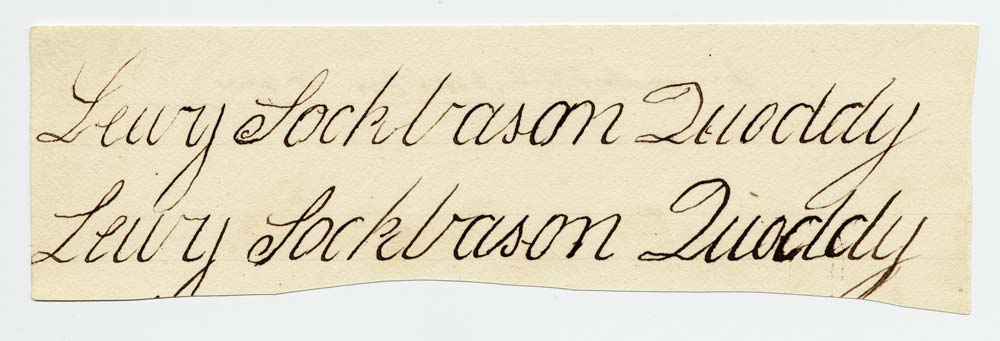 Lewy Sockbason Quoddy
Lewy Sockbason Quoddy